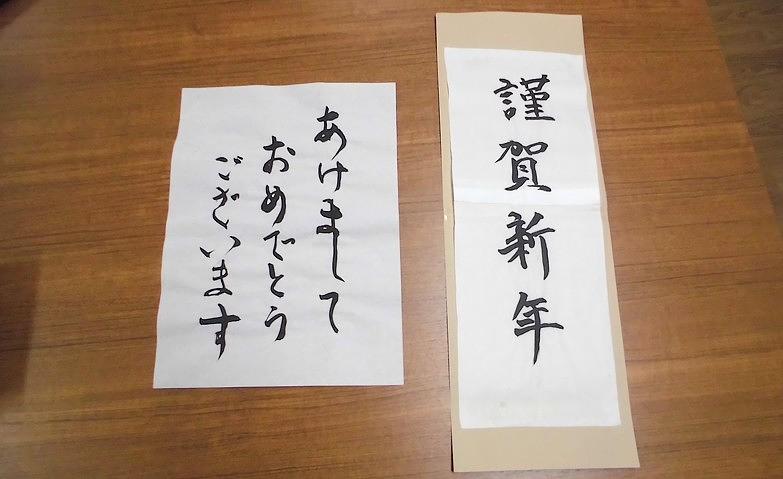 謹賀新年
あけまして
おめでとう
ございます